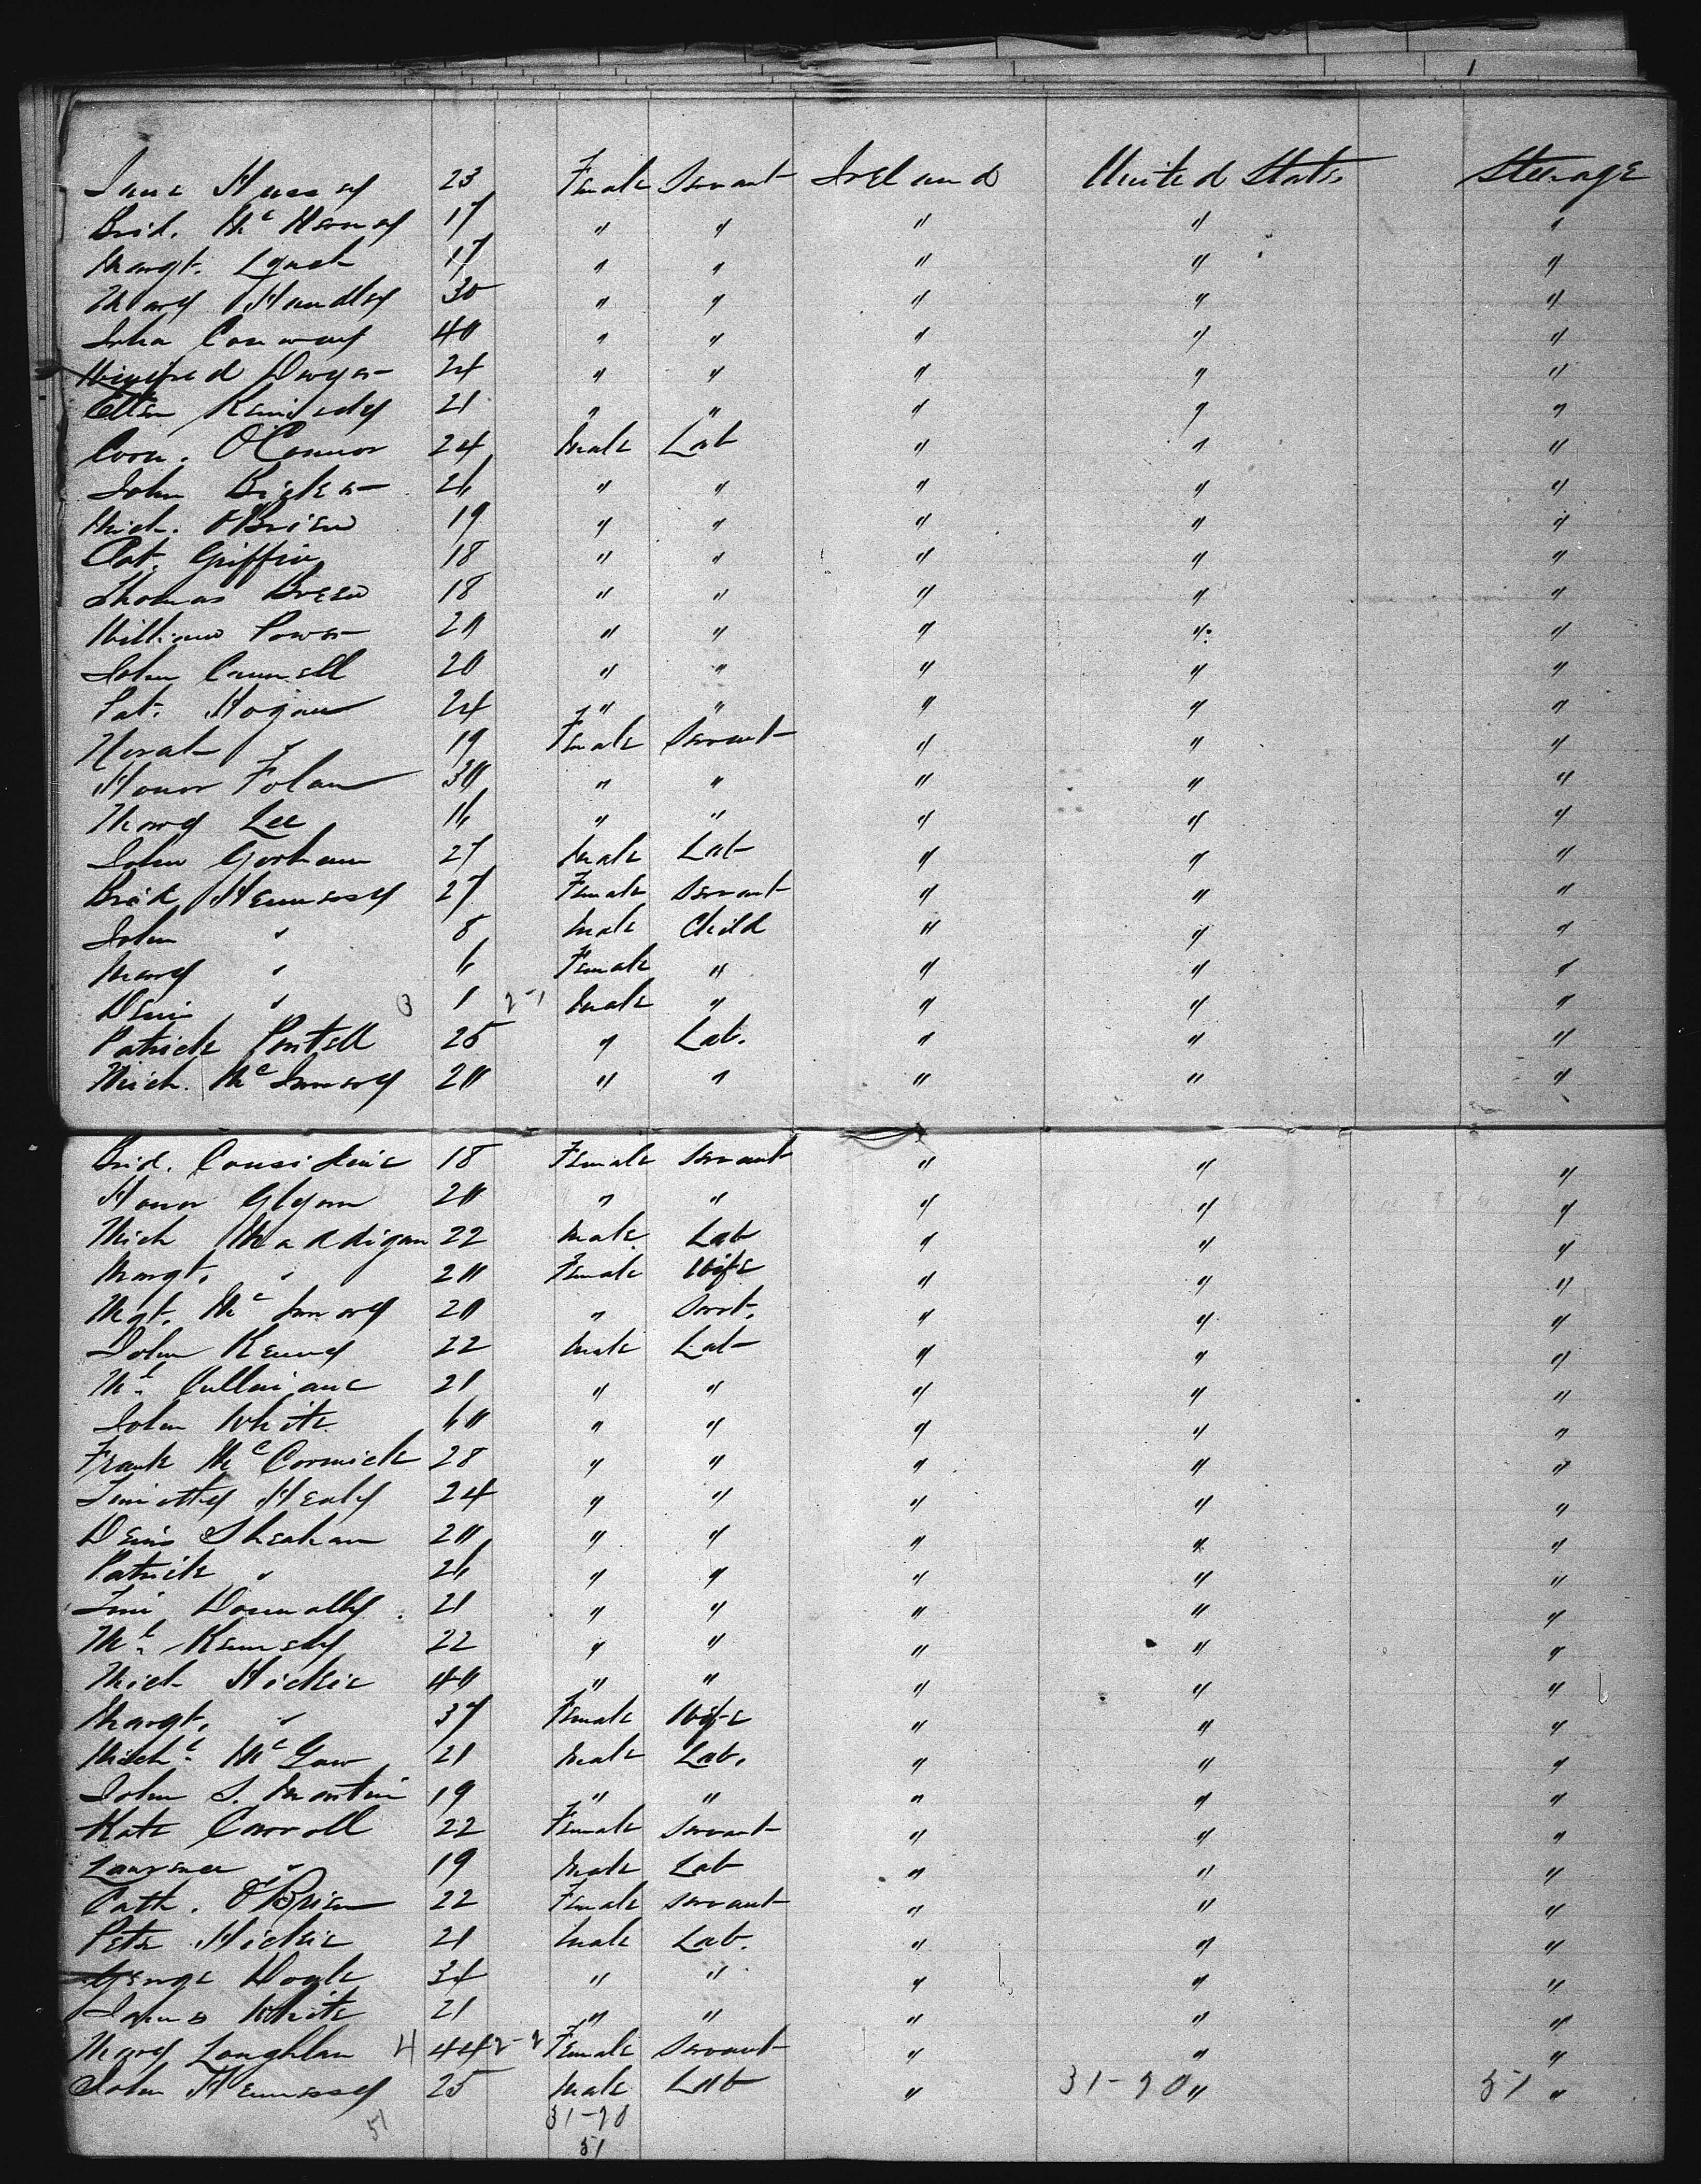 Jane Hussey 23 Female Servant Ireland United States Steerage
Brid. McNerney 17 " " " " "
Margt. Lynch 17 " " " " "
Mary Handley 30 " " " " "
Conway 40 " " " " "
Winifred Dwyer 24 " " " " "
Ellen Kennedy 21 " " " " "
Corn. O'Connor 24 Male Lab " " "
John 26 " " " " "
Mich. O'Brien 19 " " " " "
Pat. Griffin 18 " " " " "
Thomas Breen 18 " " " " "
William Power 20 " " " " "
John Cunnell 20 " " " " "
Pat. Hogan 24 " " " " "
Norah " 19 Female Servant " " "
Honor Folan 30 " " " " "
Mary Lee 16 " " " " "
John Gorham 27 Male Lab " " "
Brid Hennessy 27 Female Servant " " "
John " 8 Male Child " " "
Mary " 6 Female " " " "
Denis " 3 1 2-1 Male " " " "
Patrick Pentell 25 " Lab. " " "
Mich. McInnerey 20 " " " " "
Brid. Considine 18 Female Servant " " "
Honor Glynn 20 " " " " "
Mich Maddigan 22 Male Lab " " "
Margt. " 20 Female Wife " " "
Mgt. McInnerey 20 " Servt. " " "
John Kenny 22 Male Lab " " "
Mt. Cullinane 21 " " " " "
John White 60 " " " " "
Frank McCormick 28 " " " " "
Timothy Healy 24 " " " " "
Denis Sheahan 20 " " " " "
Patrick " 26 " " " " "
Tim Donnolly 21 " " " " "
Mt. Kennedy 22 " " " " "
Mich Hickie 40 " " " " "
Margt. " 37 Female Wife " " "
Michl. McGaw 21 Male Lab. " " "
John S. Martin 19 " " " " "
Kate Carroll 22 Female Servant " " "
Lawrence " 19 Male Lab " " "
Cath. O'Brien 22 Female Servant " " "
Peter Hickie 21 Male Lab. " " "
George 34 " " " " "
James White 21 " " " " "
Mary Loughlan 4 44 2-2 Female Servant " " "
John Hennessy 25 Male Lab " 31-20 " 51 "
51 31-20
51